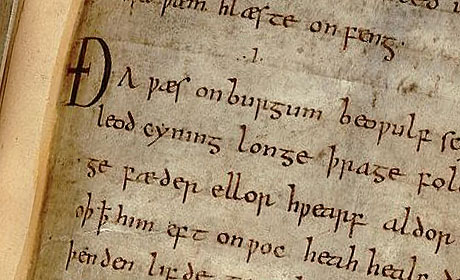 þæm hlæste onfeng·
.I.
ÐA ƿæs onburgum beoƿulf sc
leod cyning longe þrage fol
ge fæder ellor hƿearf aldor
oþꝥ him eft onƿoc heah healf
þenden lifde